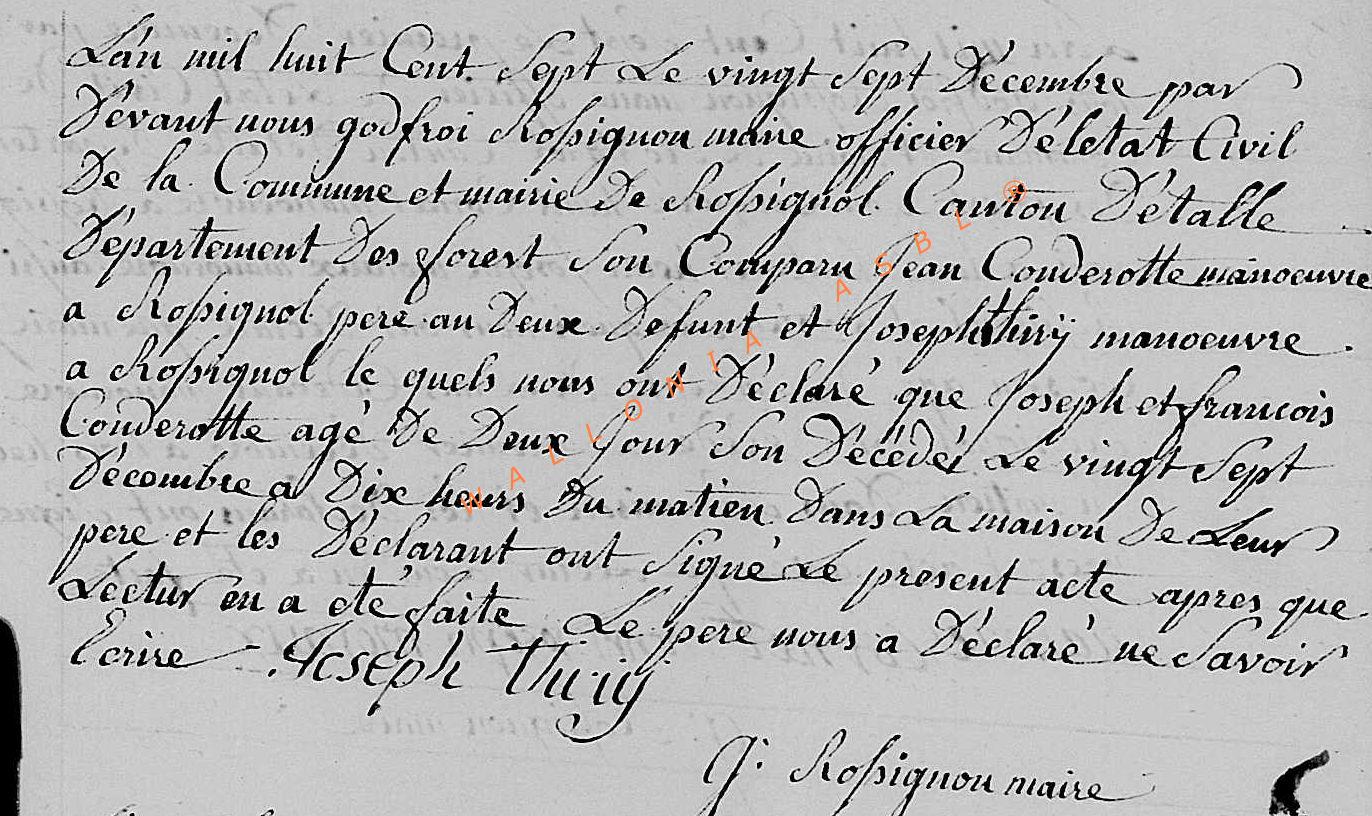 L'an mil huit Cent Sept Le vingt Sept Décembre par
Dévant nous godfroi Rossignon maire officier Déletat Civil
De la Commune et mairie De Rossignol Canton Détalle
Département Des forest Son Comparu Jean Conderotte manoeuvre
a Rossignol pere au Deux Defunt et Joseph thirÿ manoeuvre
a Rossignol le quels nous ont Déclaré que Joseph et francois
Conderotte agé De Deux Jour Son Décédéz Le vingt Sept
Décembre a Dix heurs Du matien Dans La maison De Leur
pere et les Déclarant ont Signé Le present acte apres que
Lectur en a eté faite Le pere nous a Déclaré ne Savoir
Ecrire Joseph thiry
g. Rossignon maire
WALLONIA ASBL ®